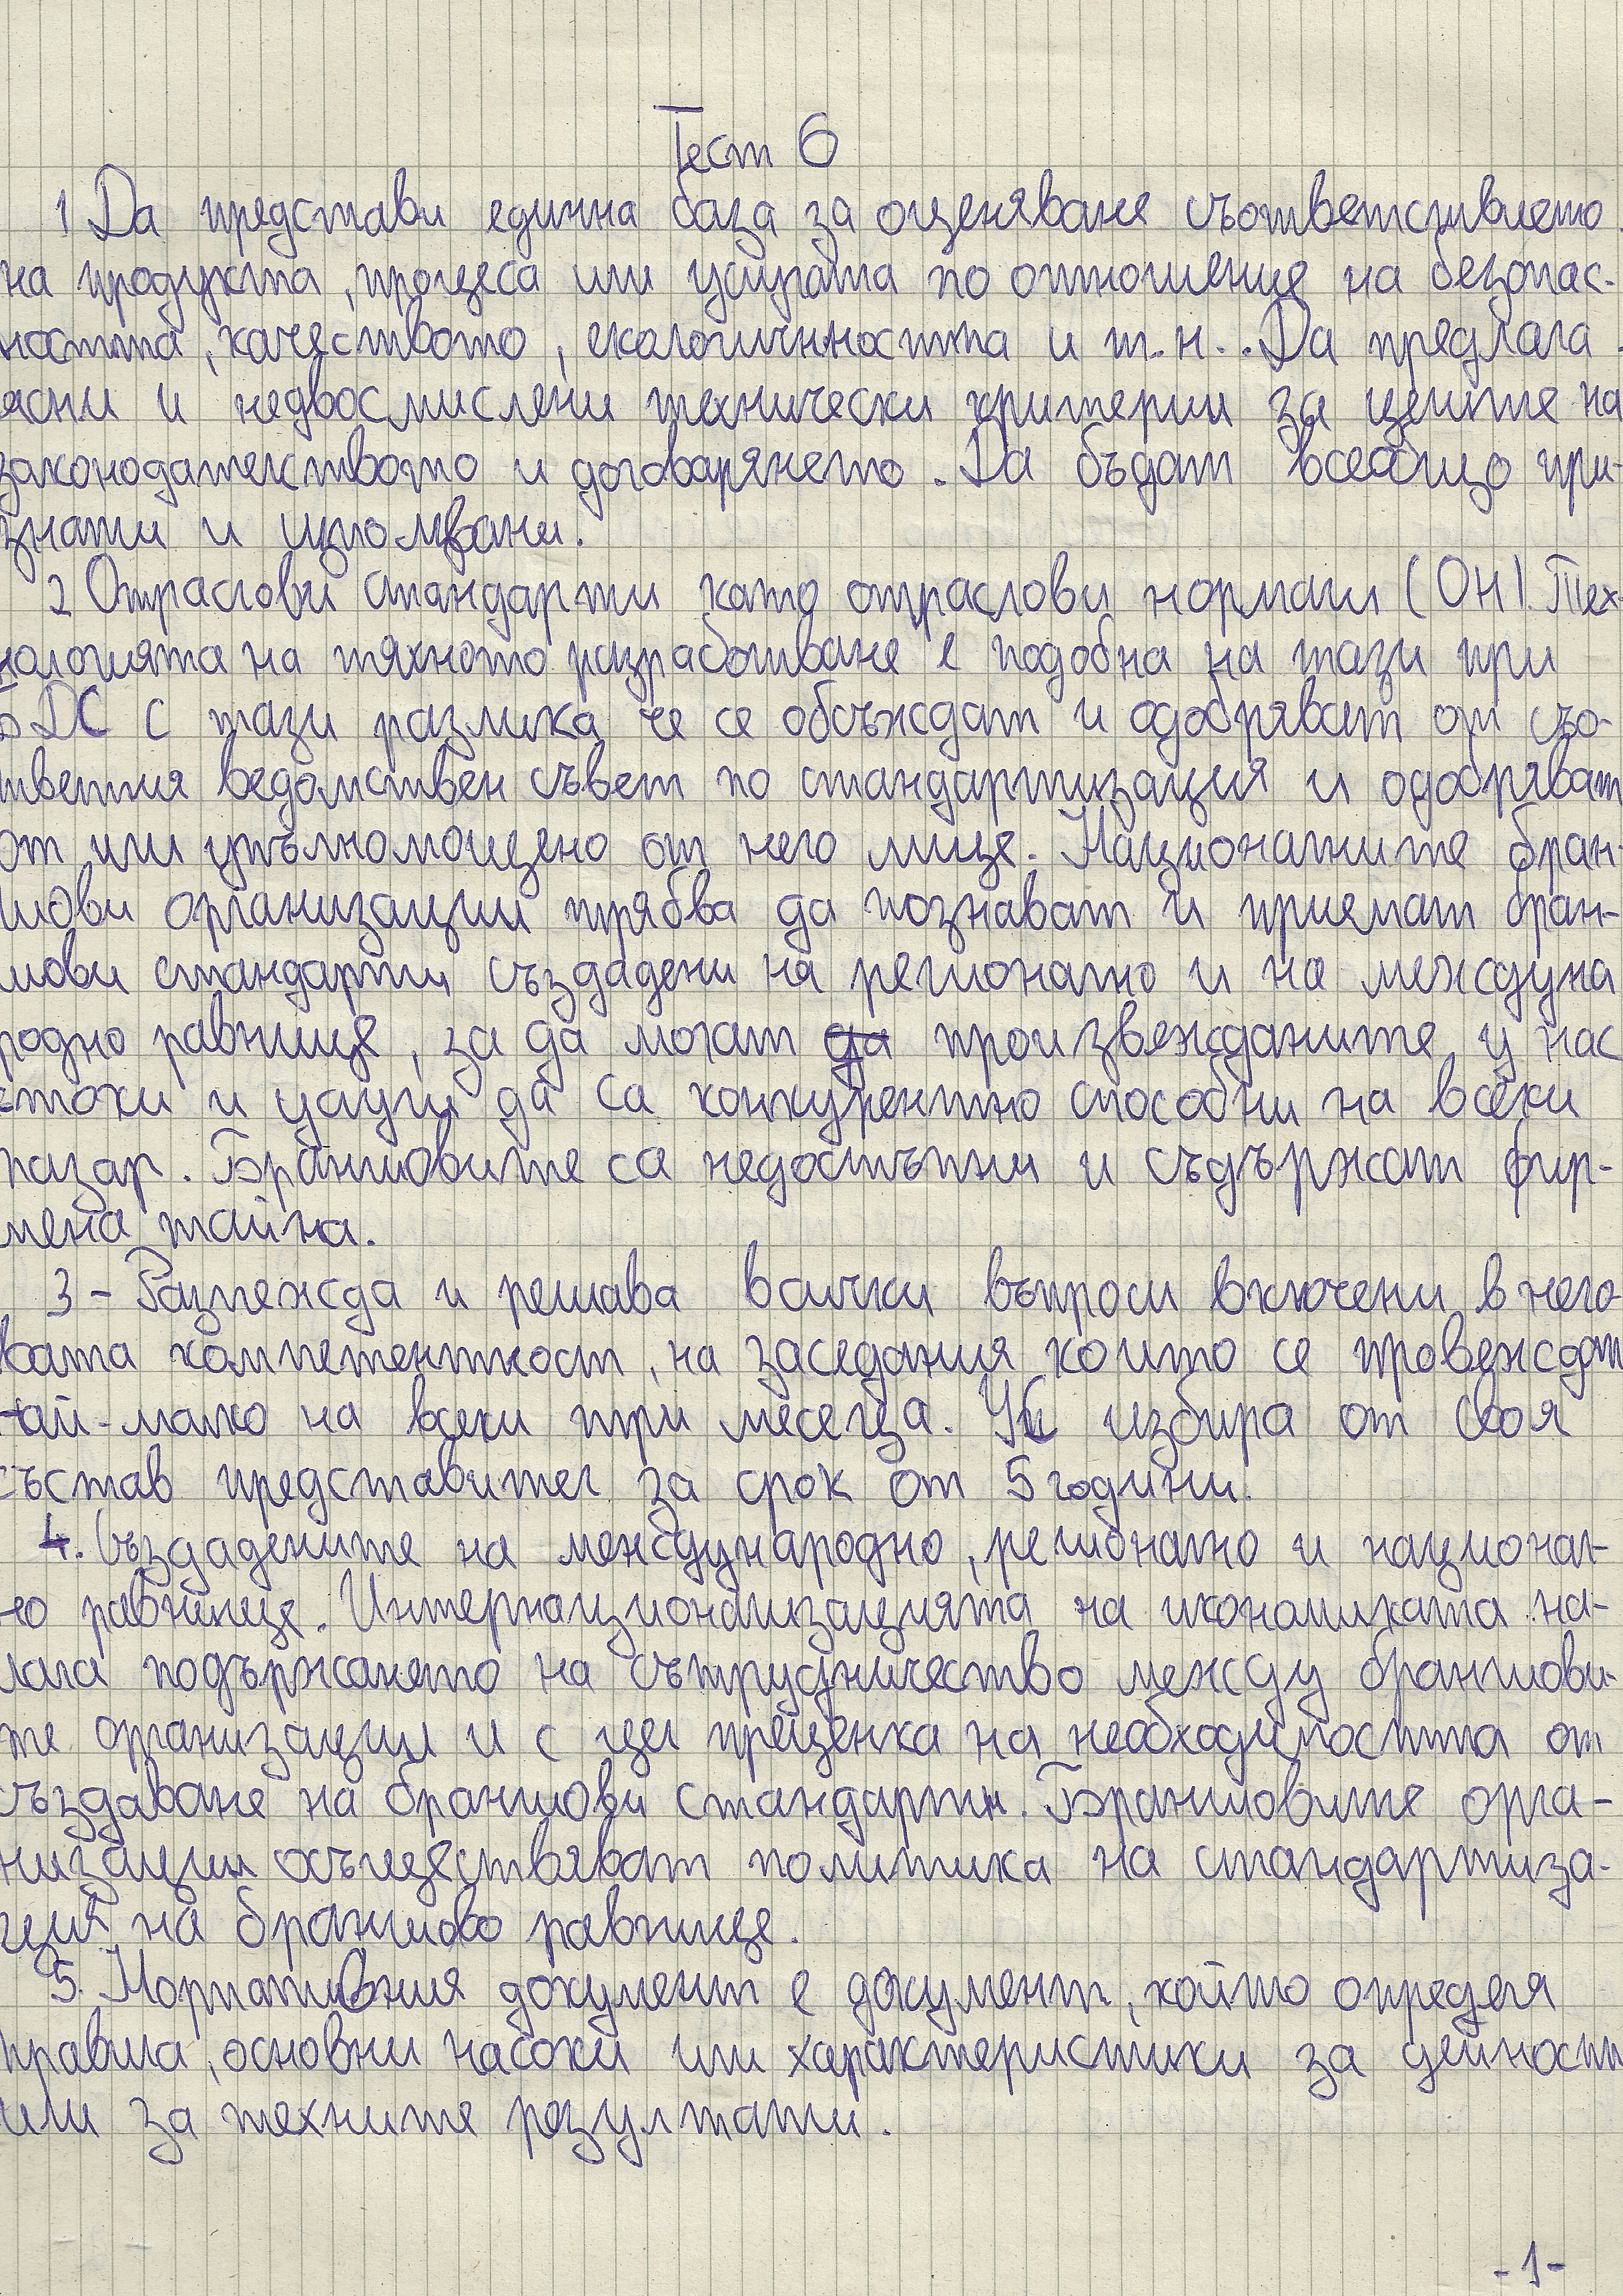 Тест 6
1 Да представи единна база за оценяване съответствието
на продукта, процеса или услугата по отношение на безопас-
ността, качеството, екологичнността и т.н.. Да предлага
ясни и недвосмислени технически критерии за целите на
законодателството и договарянето. Да бъдат всеобщо при-
знати и използвани.
2 Отраслови стандарти като отраслови нормали (ОН). Тех-
нологията на тяхното разработване е подобна на тази при
БДС с тази разлика че се обсъждат и одобряват от съо-
тветния ведомствен съвет по стандартизация и одобряват
от или упълномощено от него лице. Националните бран-
шови организации трябва да познават и приемат бран-
шови стандарти създадени на регионално и на междуна
родно равнище, за да могат да произвежданите у нас
стоки и услуги да са конкурентно способни на всеки
пазар. Браншовите са недостъпни и съдържат фир-
мена тайна.
3 - Разглежда и решава всички въпроси включени в него-
вата компетентност, на заседания които се провеждат
най-малко на всеки три месеца. УС избира от своя
състав представител за срок от 5 години.
4. Създадените на международно, регионално и национал-
но равнище. Интернационализацията на икономиката на-
лага подържането на сътрудничество между браншови-
те организации и с цел преценка на необходимостта от
създаване на браншови стандарти. Браншовите орга-
низации осъществяват политика на стандартиза-
ция на браншово равнище.
5. Нормативния документ е документ, който определя
правила, основни насоки или характеристики за дейности
или за техните резултати.
-1-